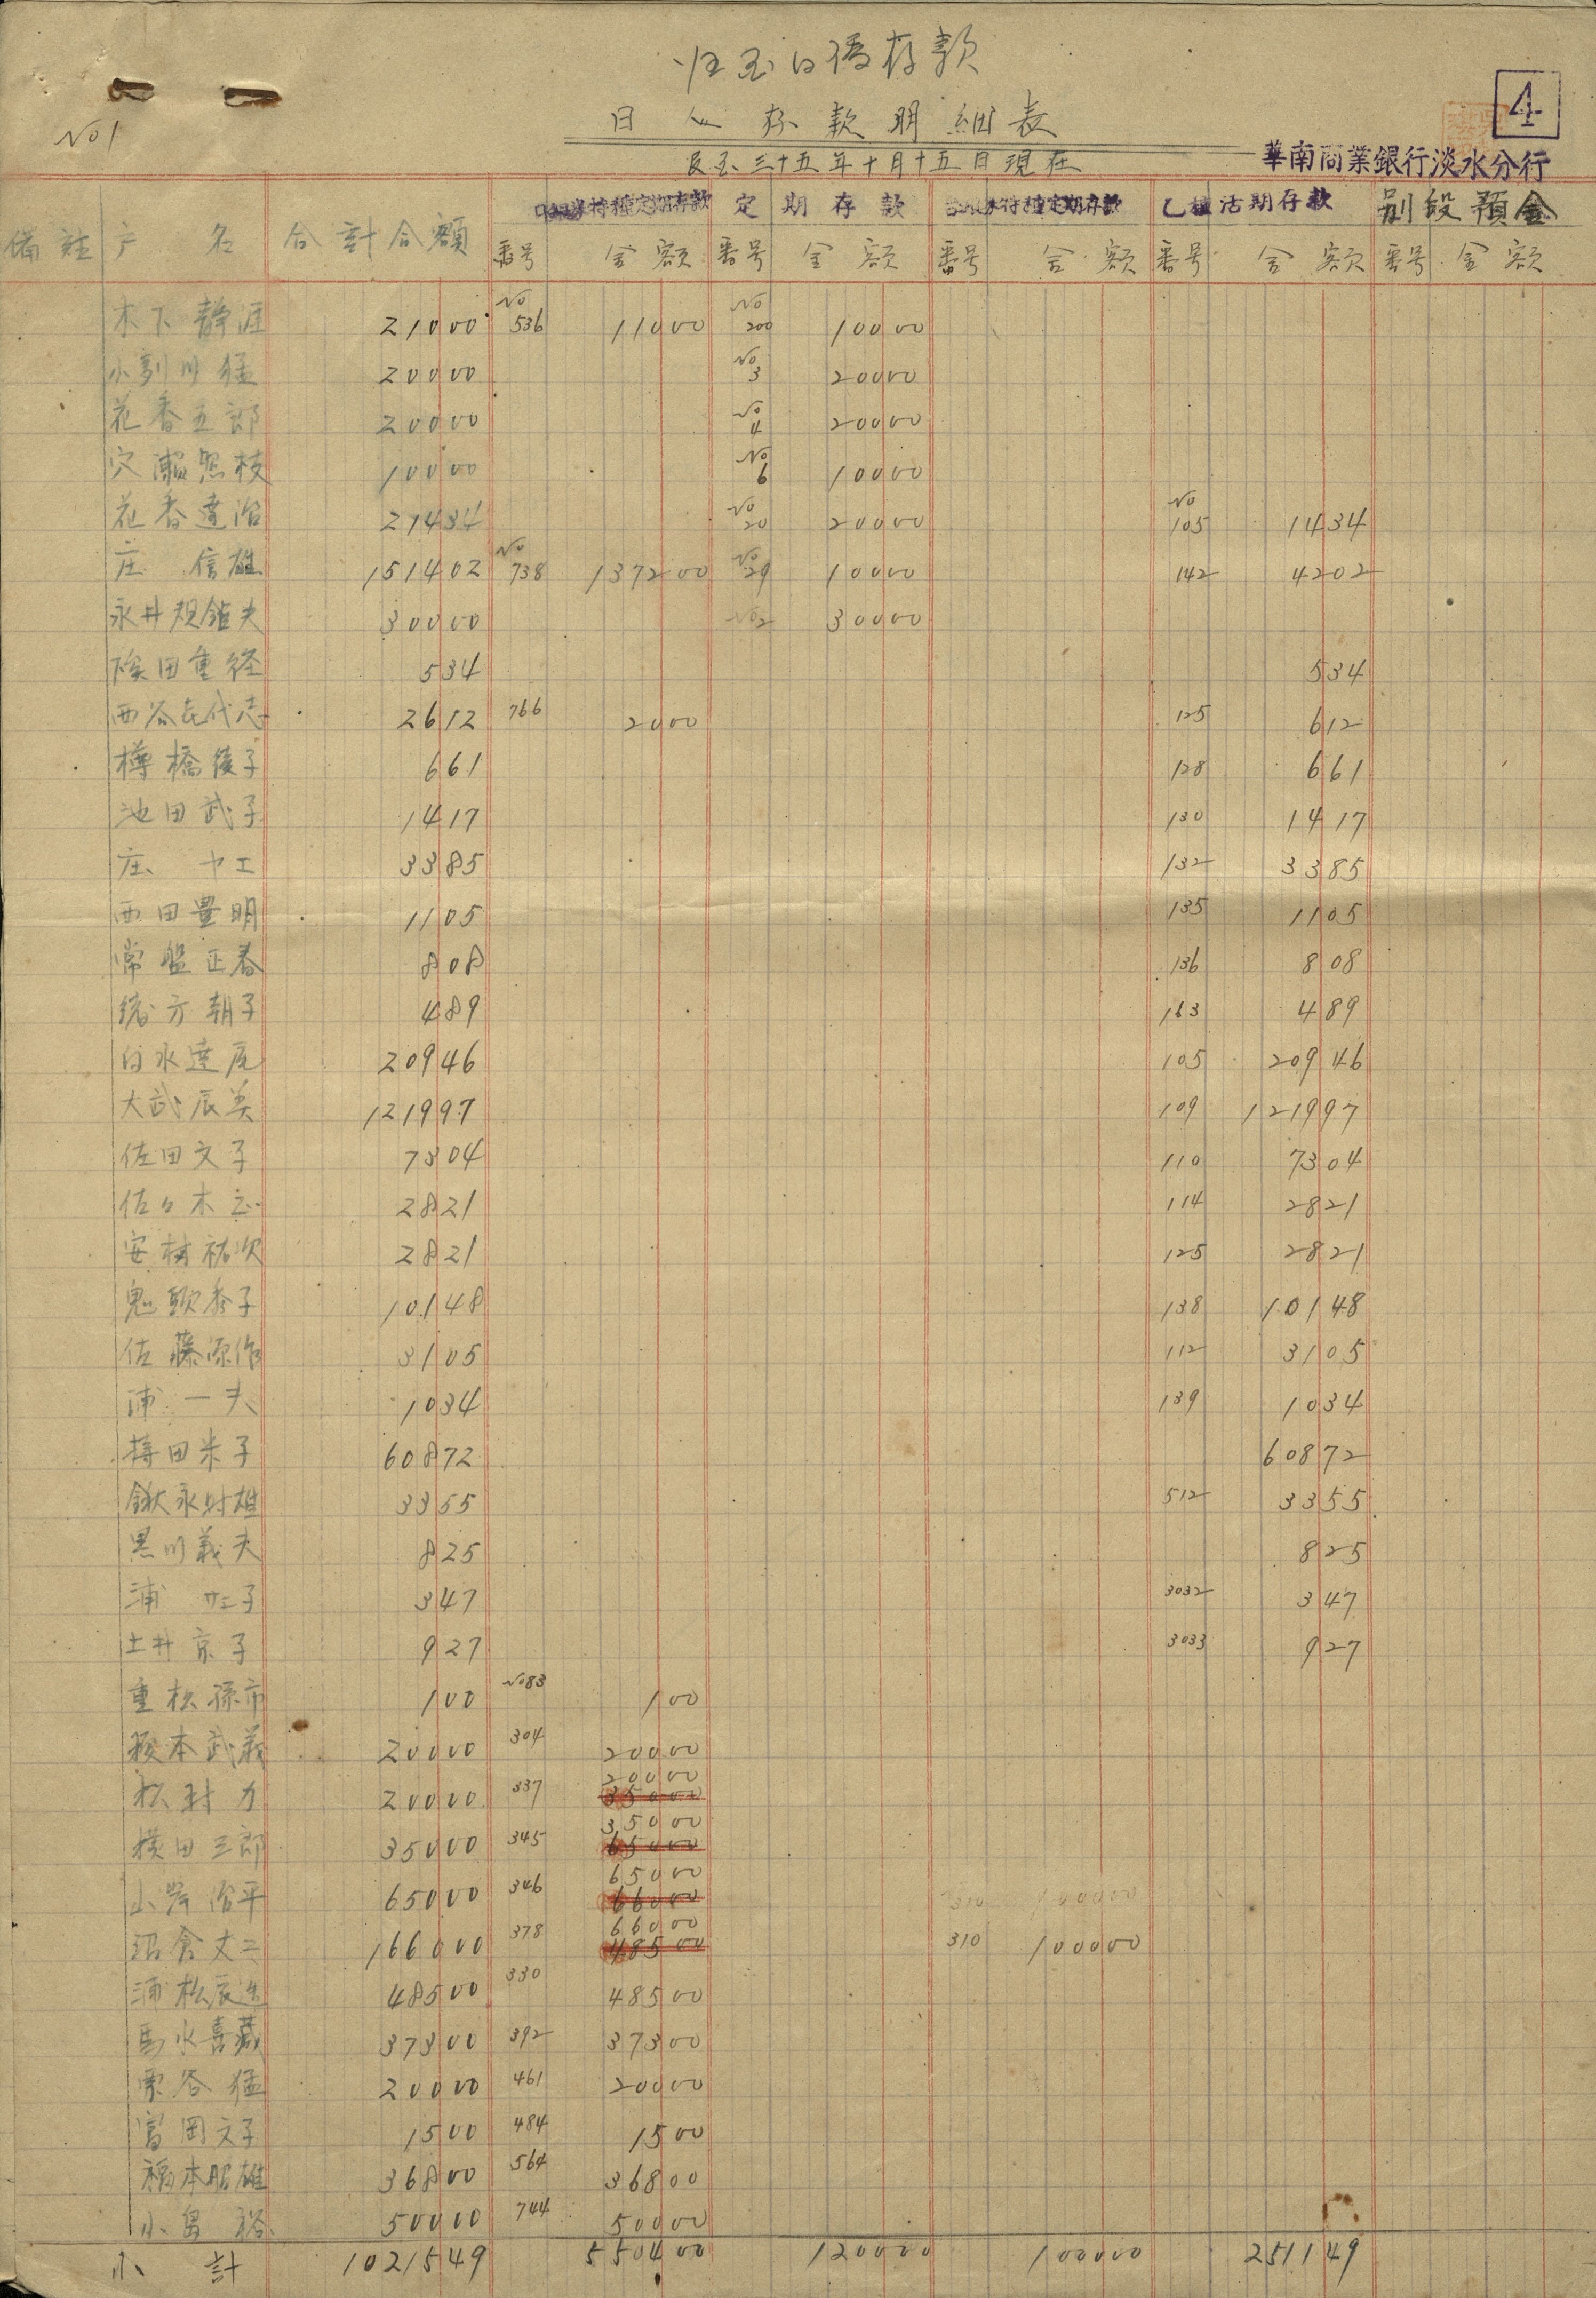 日人存款明細表
No 1
4
民国三十五年十月十五日現在
華南商業銀行淡水分行
特種定期存款 定期存款 特種定期存款 乙種活期存款 別段預金
備註 戸名 合計金額 番号 金額 番号 金額 番号 金額 番号 金額 番号 金額
木下静涯 21000 No 536 11000 No 200 10000
猛 20000 No 3 20000
花香五郎 20000 No 4 20000
穴瀬照枝 10000 No 6 10000
花香達治 21434 No 20 20000 No 105 1434
庄 信雄 151402 No 738 137200 No 29 10000 142 4202
永井規矩夫 30000 No 2 30000
田重径 534 534
西谷 代志 2612 766 2000 125 612
樽橋綾子 661 128 661
池田武子 1417 130 1417
庄 ヤエ 3385 132 3385
西田豊明 1105 135 1105
常盤正春 808 136 808
緒方朝子 489 163 489
白水達 20946 105 20946
大武辰美 121997 109 121997
佐田文子 7304 110 7304
佐々木 2821 114 2821
安村祐次 2821 125 2821
鬼頭 子 10148 138 10148
佐藤源作 3105 112 3105
浦 一夫 1034 139 1034
樽田米子 60872 60872
鍬永 雄 3355 512 3355
黒川義夫 825 825
浦 子 347 3032 347
土井京子 927 3033 927
重松孫市 100 No 83 100
榎本武義 20000 304 20000
松村 力 20000 337 20000 35000
横田三郎 35000 345 35000 65000
山岸治平 65000 346 65000 66000 310 100000
沼倉丈二 166000 378 66000 48500 310 100000
浦松辰 48500 330 48500
馬水喜蔵 37300 392 37300
栗谷 猛 20000 461 20000
富岡文子 1500 484 1500
福本昭雄 36800 564 36800
小島 裕 50000 744 50000
小計 1021549 550400 120000 100000 251149